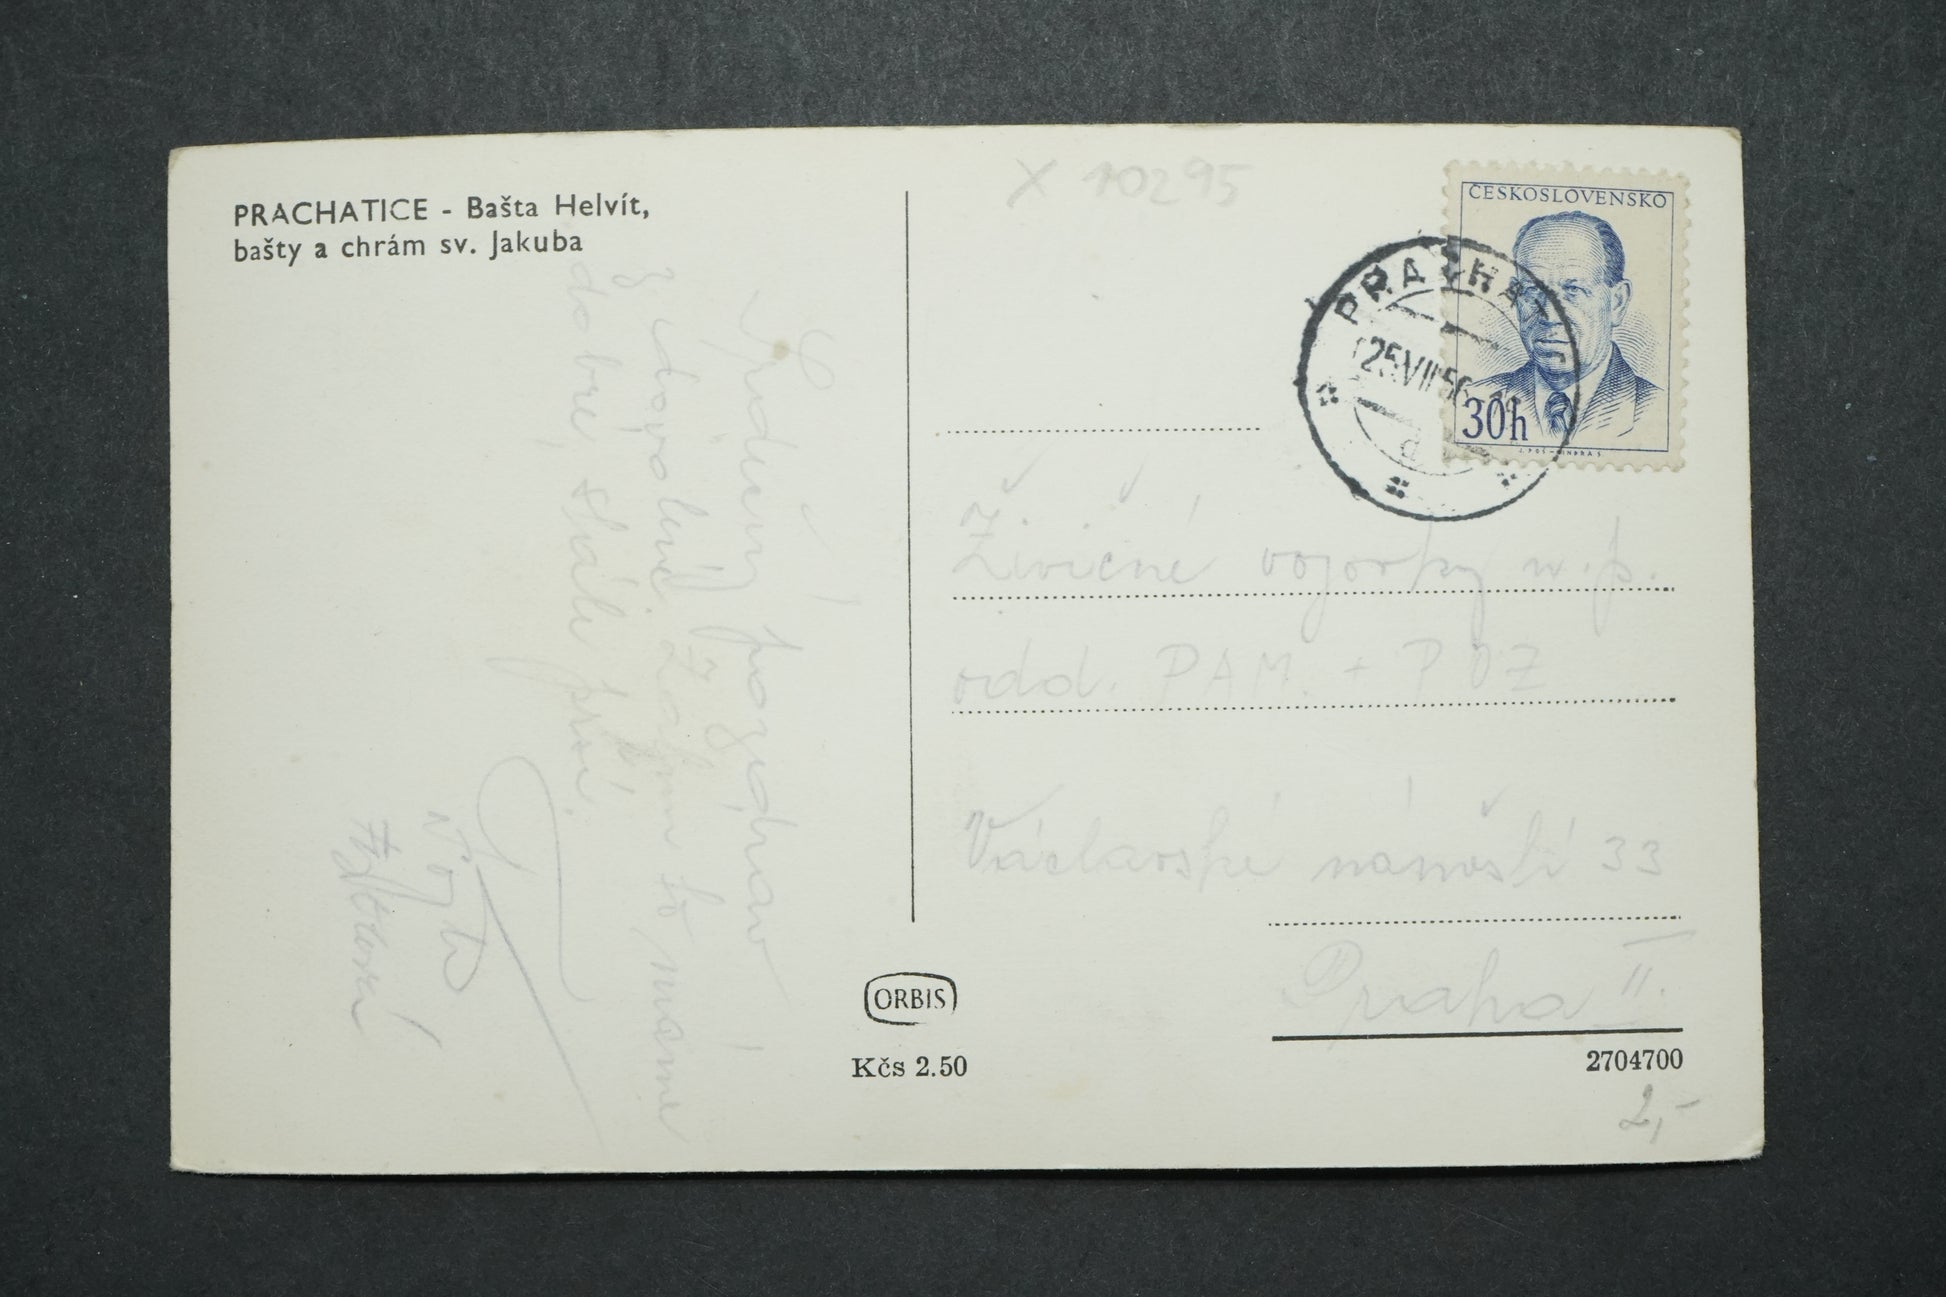 PRACHATICE - Bašta Helvít,
bašty a chrám sv. Jakuba
X 10295
ČESKOSLOVENSKO
30h
PRACHATICE
25.VII.56
a
Srdečný pozdrav
z dovolené. Zatím to máme
dobré, stále prší.
Živičné vozovky n.p.
odd. PAM. + POZ
Václavské náměstí 33
Praha II.
ORBIS
Kčs 2.50
2704700
2,-